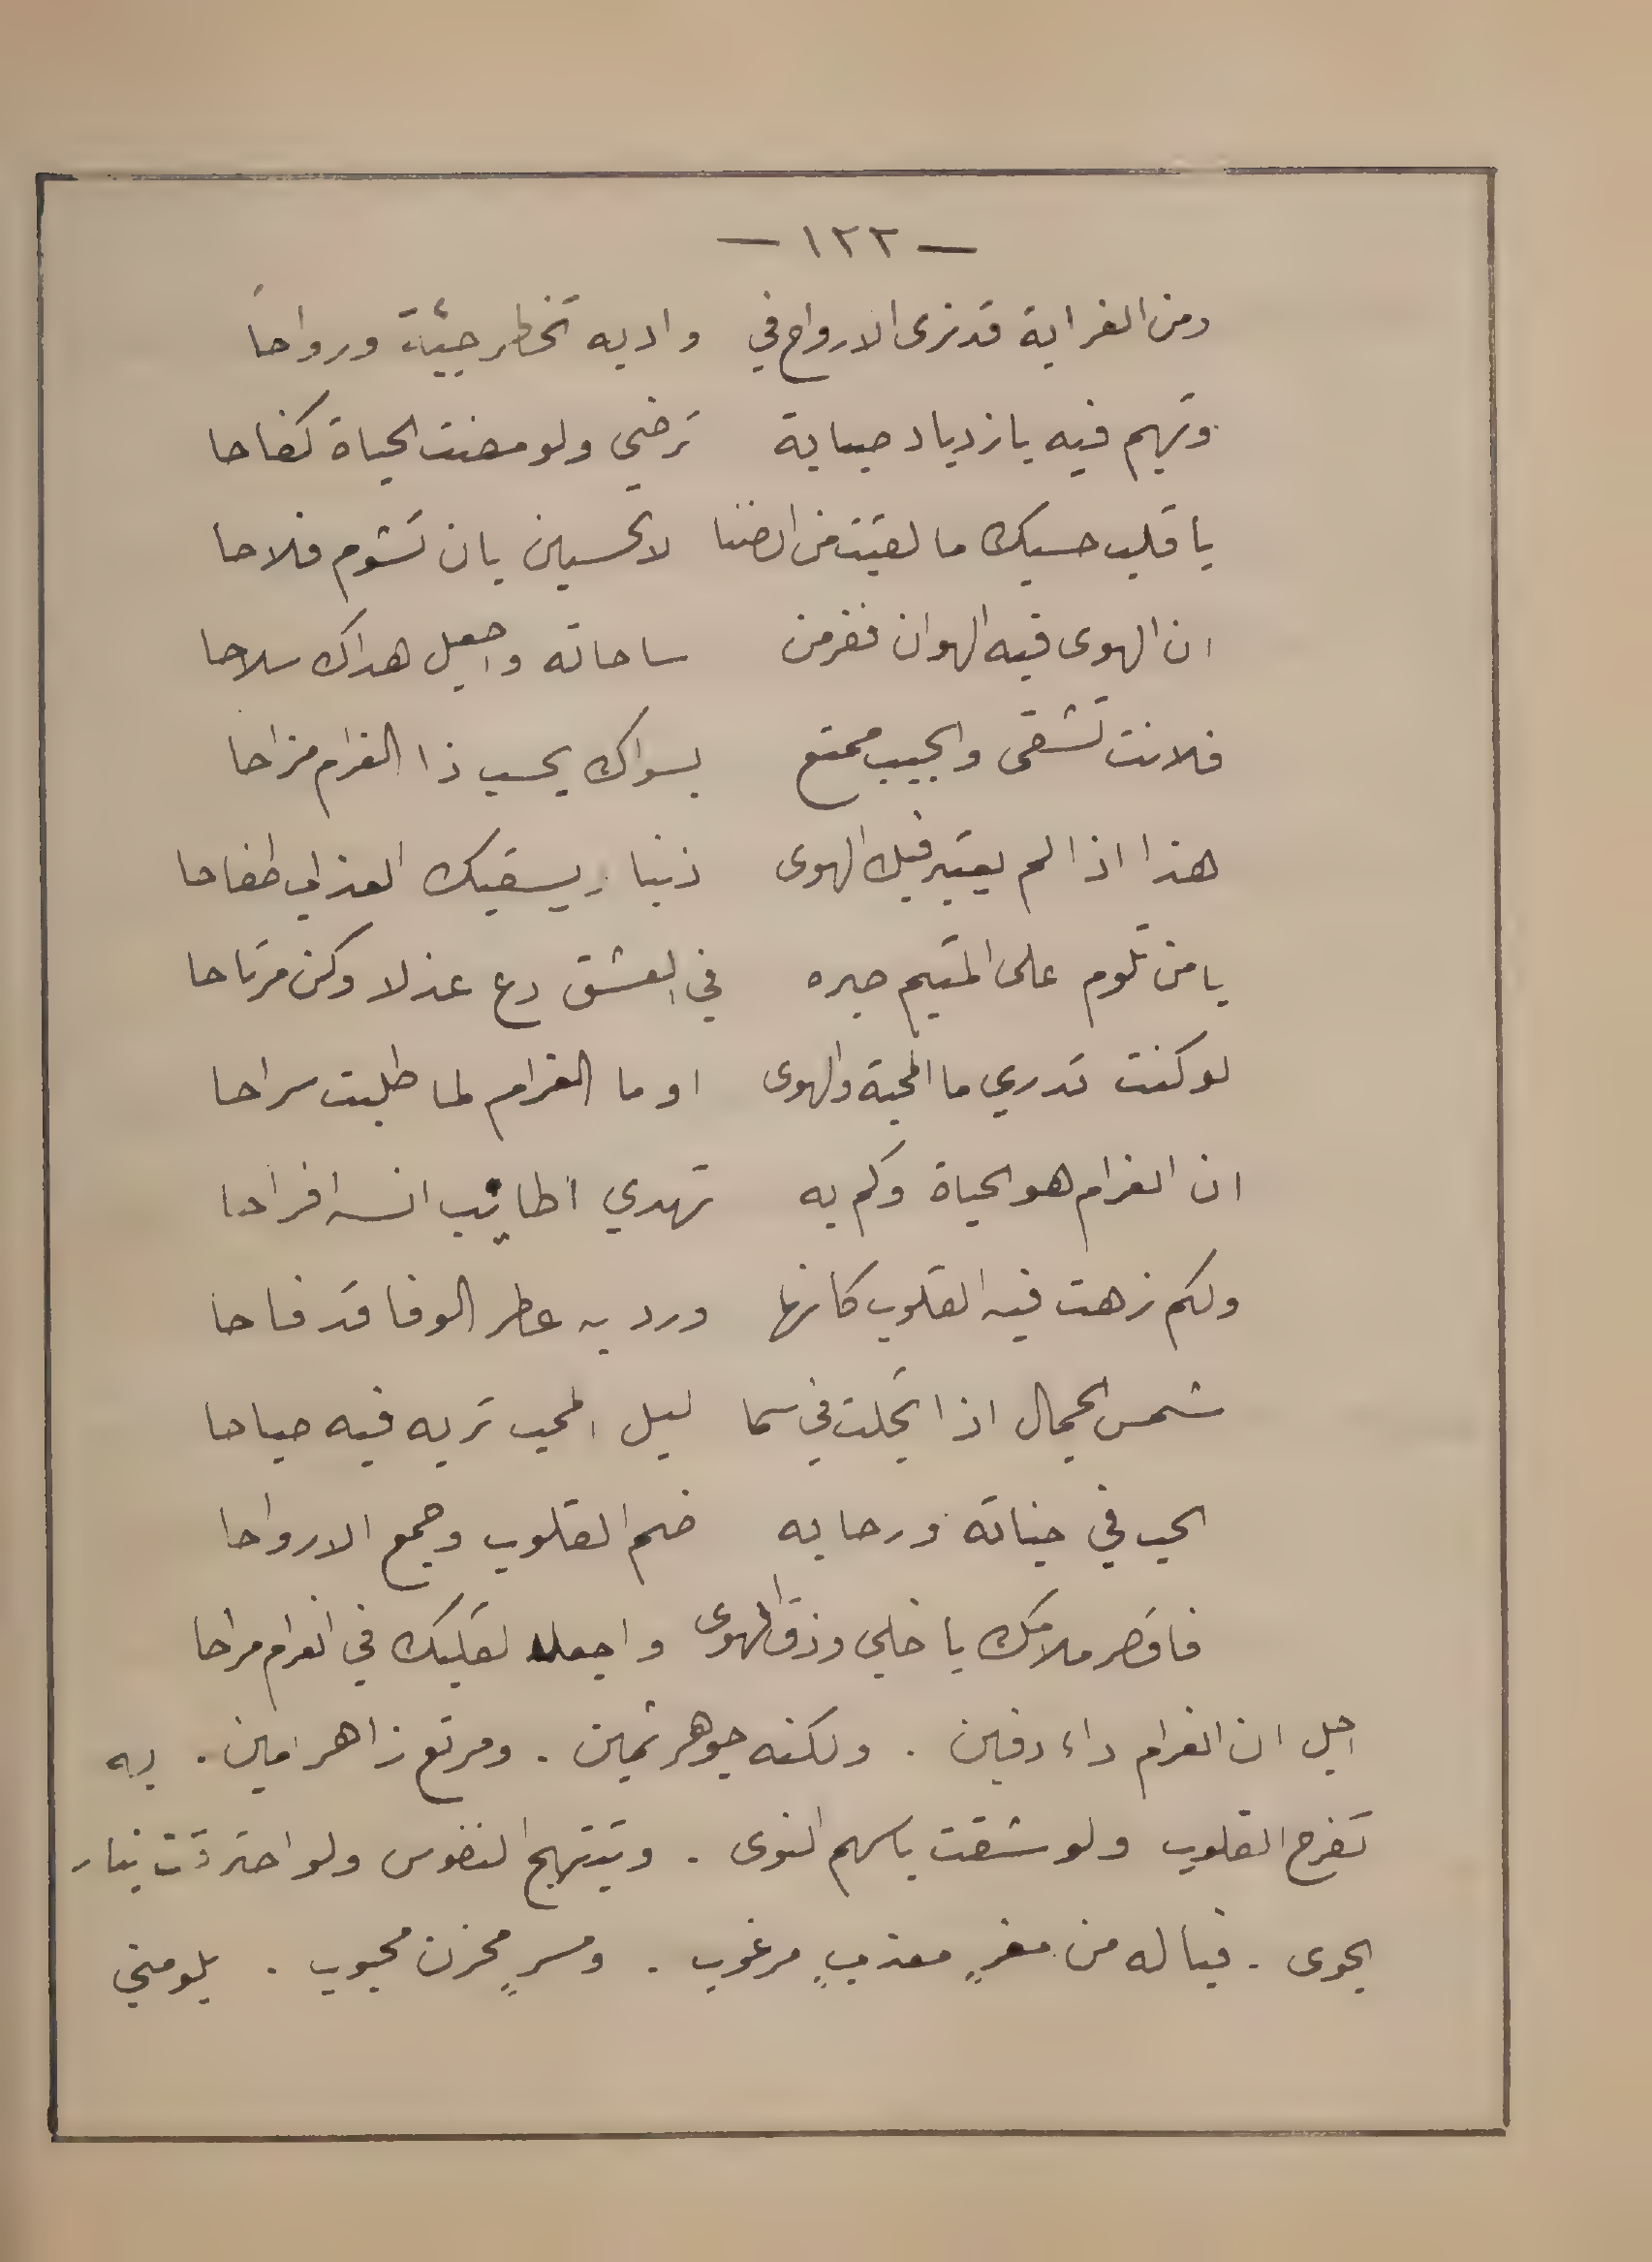 — ١٢٢ —
ومن الغرابة قد نرى الارواح في واديه تخطر جيئة ورواحاً
وتهيم فيه بازدياد صبابة ترضى ولو مضت الحياة كفاحا
يا قلب حسبك ما لقيت من الضنا لا تحسبن بان تشوم فلاحا
ان الهوى فيه الهوان ففر من ساحاته واجعل هداك سلاحا
فلانت تشقى والحبيب ممتع بسواك يحسب ذا الغرام مزاحا
هذا اذا لم يعتبر فيك الهوى ذنبا ويسقيك العذاب طفاحا
يا من تلوم على المتيم صبره في العشق دع عذلا وكن مرتاحا
لو كنت تدري ما المحبة والهوى او ما الغرام لما طلبت سراحا
ان الغرام هو الحياة وكم به تهدي اطائب انسه افراحا
ولكم زهت فيه القلوب كانها ورد به عطر الوفا قد فاحا
شمس الجمال اذا تجلت في سما ليل المحب تريه فيه صباحا
الحب في جناته ورحابه ضم القلوب وجمع الارواحا
فاقصر ملامك يا خلي وذق الهوى واجعل لقلبك في الغرام مراحا
اجل ان الغرام داء دفين . ولكنه جوهر ثمين . ومرتع زاهر امين . به
تفرح القلوب ولو شقت باسهم النوى . وتبتهج النفوس ولو احترقت بنار
الجوى . فيا له من مغرٍ معذبٍ مرغوب . ومسرٍ محزن محبوب . يلومني